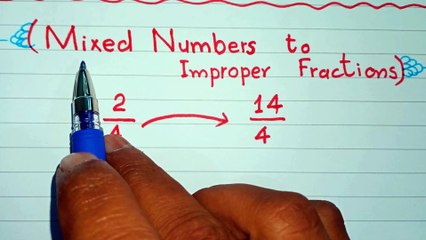 (Mixed Numbers to
Improper Fractions)
2/4 → 14/4